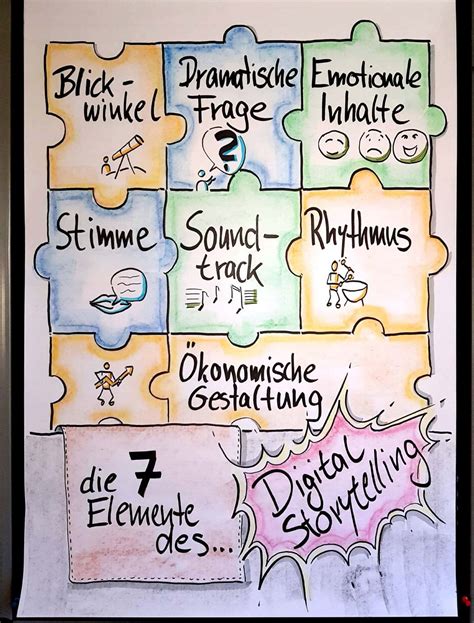 Blick-
winkel
Dramatische
Frage
?
Emotionale
Inhalte
Stimme
Sound-
track
Rhythmus
Ökonomische
Gestaltung
die 7
Elemente
des...
Digital
Storytelling